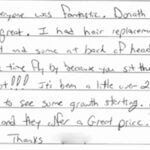 eryone was fantastic. Donath
great. I had hair replacemen
t and some at back of head
time fly by because you sit th
ot!!! It's been a little over 2
to see some growth starting.
and they offer a Great price.
Thanks